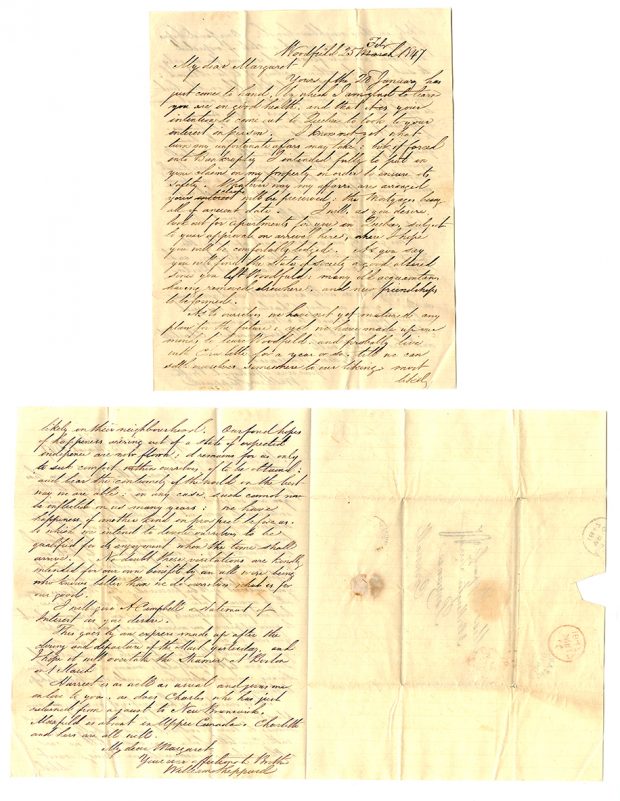 Woodfield 25 Feby March 1847
My dear Margaret
Yours of the 26 January has
just come to hand, by which I am glad to learn
you are in good health, and that it is your
intention to come out to Quebec to look to your
interest in person. I know not yet what
turn my unfortunate affairs may take; but if forced
into Bankruptcy I intended fully to put in
your claim on my property in order to ensure its
safety. Whatever way my affairs are arranged
your interest will be preserved: the Mortgages being
all of ancient date. I will, as you desire,
look out for apartments for you in Quebec, subject
to your approval on arrival here, where I hope
you will be comfortably lodged. As you say
you will find the state of society a good deal altered
since you left Woodfield: many old acquaintances
having removed elsewhere, and new friendships
to be formed.
As to ourselves we have not yet matured any
plan for the future; yet we have made up our
minds to leave Woodfield, and probably live
with for a year or so, till we can
suit ourselves somewhere to our liking most
likely
likely in their neighbourhood. Our fond hopes
of happiness arising out of a state of expected
are now flown; it remains for us only
to seek comfort within ourselves, if to be attained:
and bear the of the world in the best
way we are able: in any case, such cannot now
be inflicted on us many years: we have
happiness of another kind in prospect before us,
to which we intend to devote ourselves to be
qualified for its enjoyment when the time shall
arrive. No doubt these visitations are kindly
intended for our own benefit by an all wise being
who knows better than we do ourselves what is for
our good.
I will give A Campbell a statement of
Interest as you desire.
This goes by an express made up after the
and departure of the Mail yesterday, and
I hope it will overtake the Steamer at Boston
1 March
Harriet is as well as usual and joins me
in love to you, as does Charles, who has just
returned from a jaunt to New Brunswick,
is absent in Upper Canada. Charlotte
and hers are all well.
My dear Margaret
Your ever affectionate Brother
William Sheppard